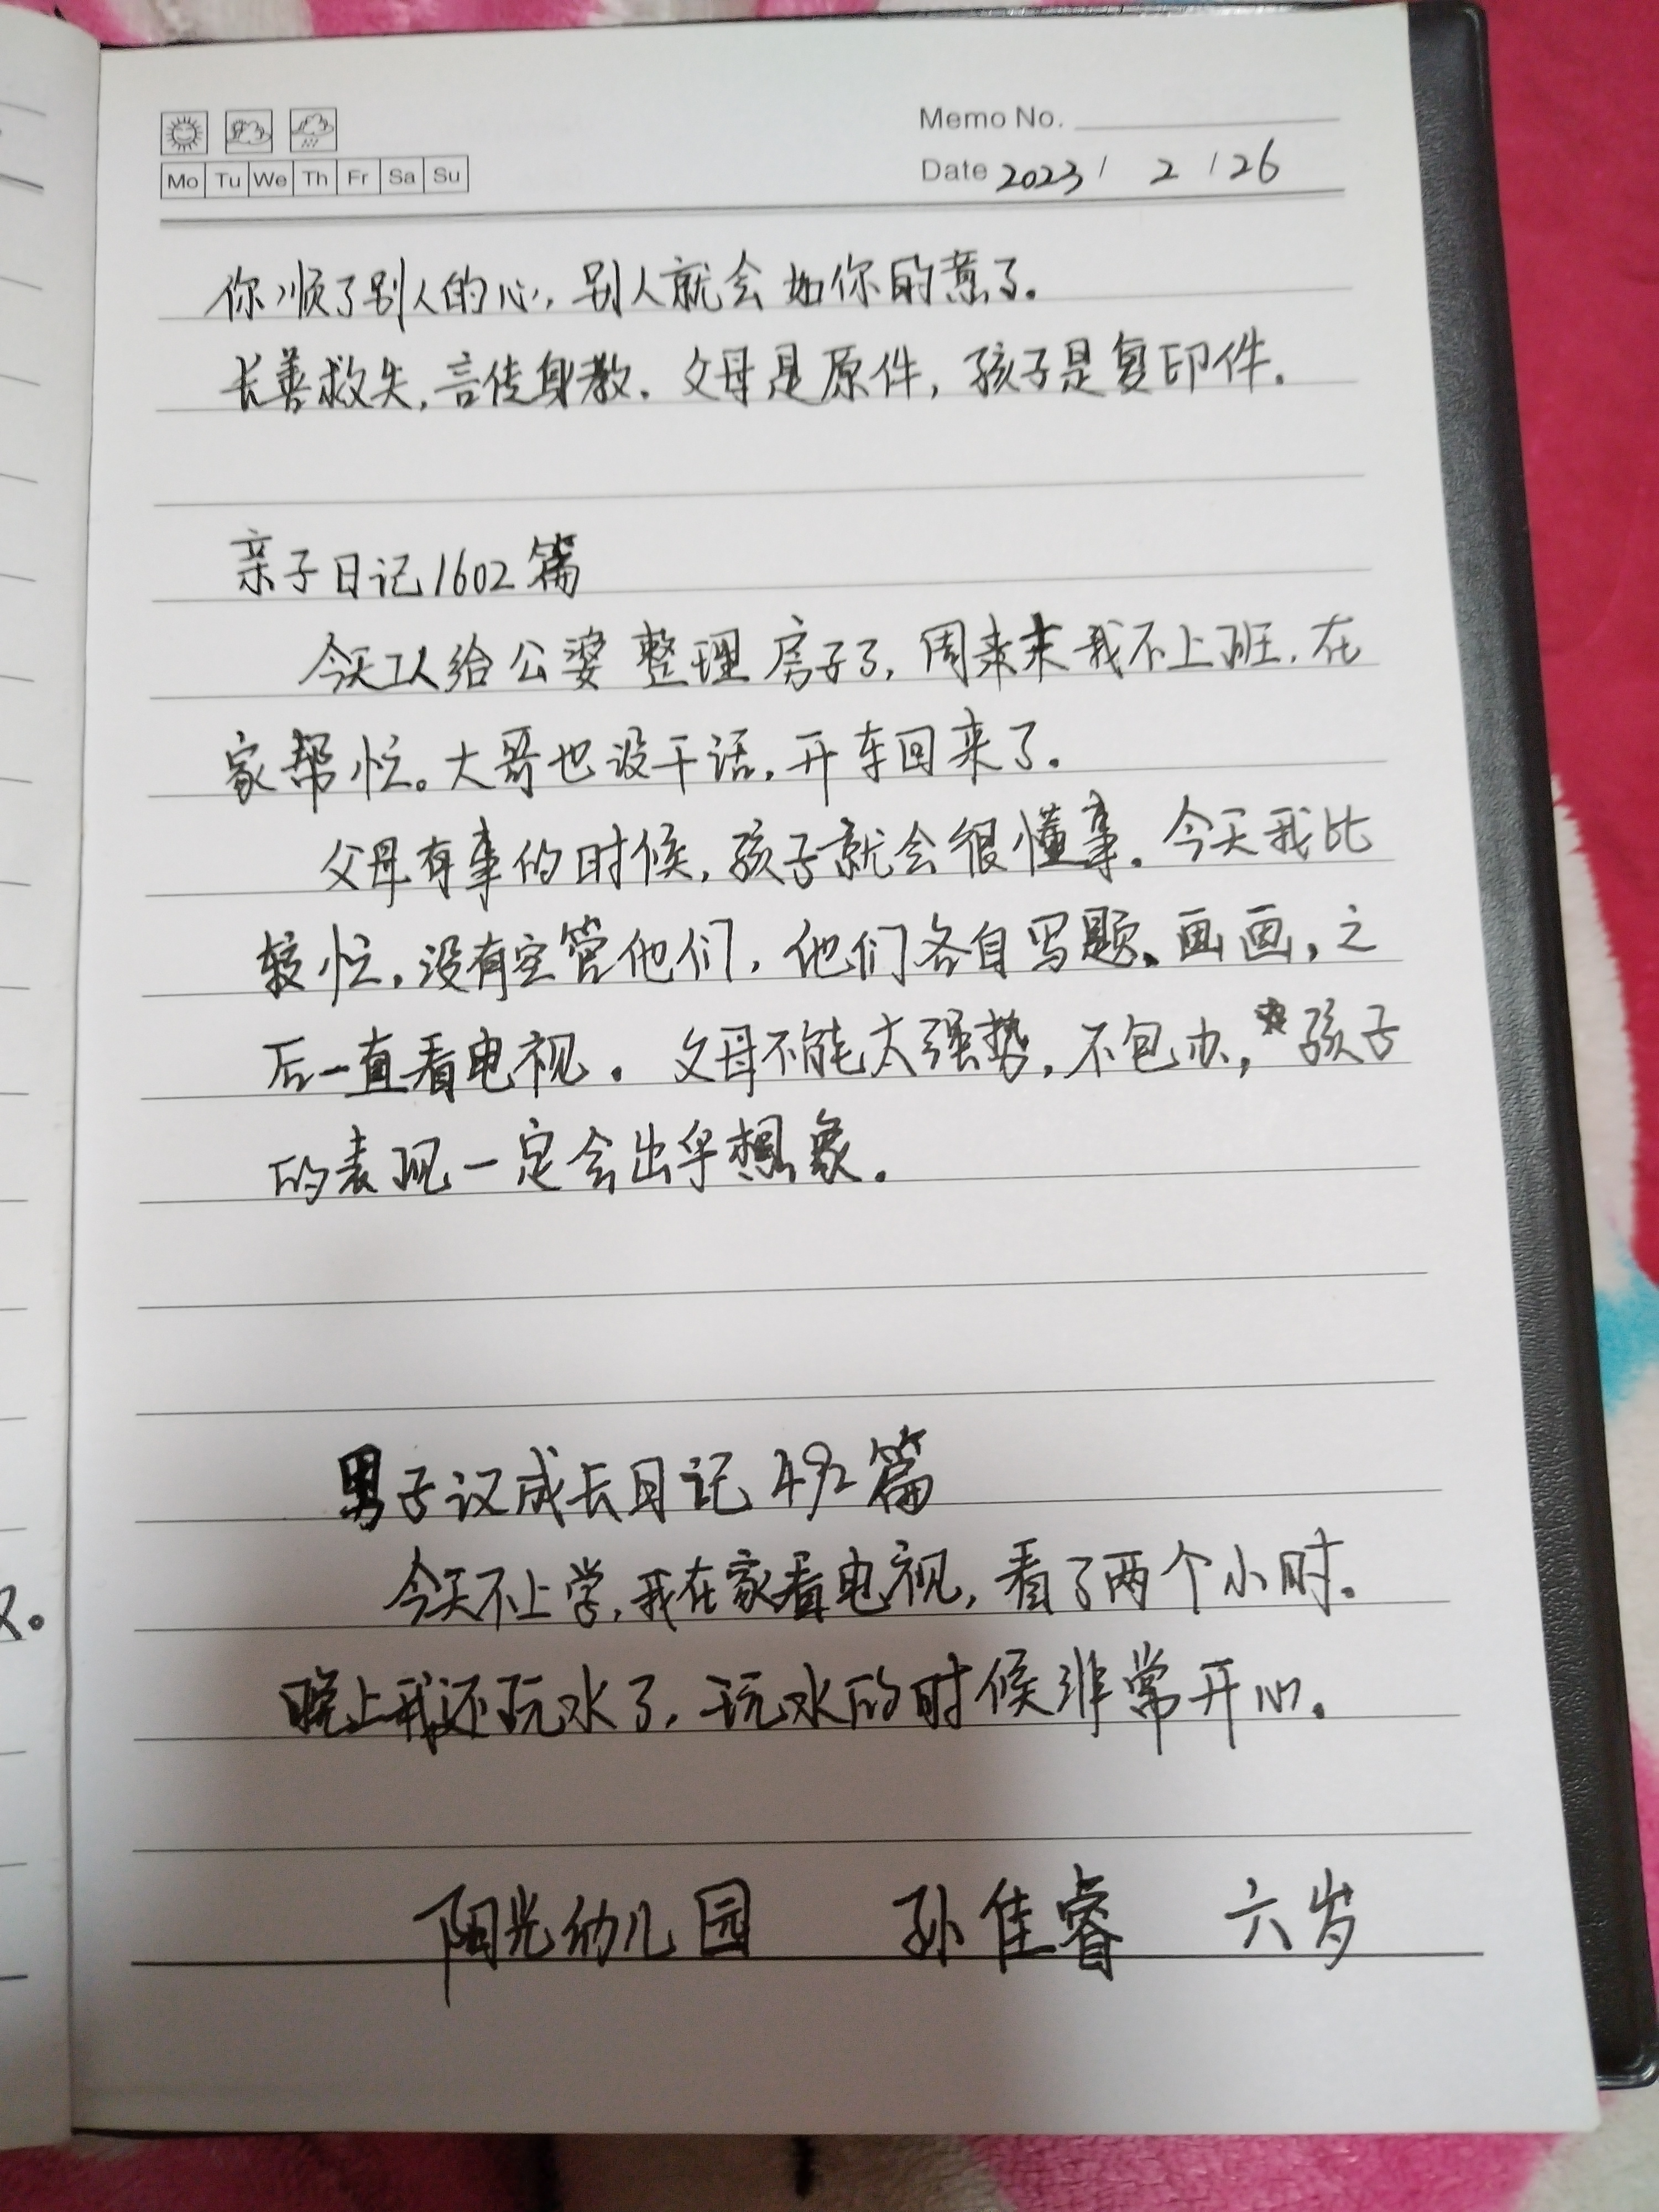 Memo No.
Mo Tu We Th Fr Sa Su
Date 2023 / 2 / 26
你顺了别人的心,别人就会如你的意了。
长善救失,言传身教。父母是原件,孩子是复印件。
亲子日记1602篇
今天工人给公婆整理房子了,周末我不上班,在
家帮忙。大哥也没干活,开车回来了。
父母有事的时候,孩子就会很懂事。今天我比
较忙,没有空管他们,他们各自写题、画画,之
后一直看电视。父母不能太强势,不包办,孩子
的表现一定会出乎想象。
男子汉成长日记492篇
今天不上学,我在家看电视,看了两个小时。
晚上我还玩水了,玩水的时候非常开心。
阳光幼儿园 孙佳睿 六岁